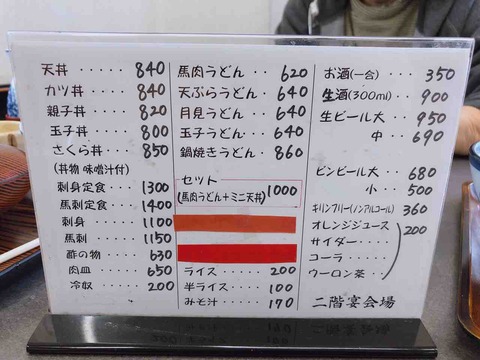 天丼・・・・・840
カツ丼・・・・840
親子丼・・・・820
玉子丼・・・・800
さくら丼・・・850
(丼物 味噌汁付)
刺身定食・・・1300
馬刺定食・・・1400
刺身・・・・・1100
馬刺・・・・・1150
酢の物・・・・630
肉皿・・・・・650
冷奴・・・・・200
馬肉うどん・・620
天ぷらうどん・640
月見うどん・・640
玉子うどん・・640
鍋焼きうどん・860
セット
(馬肉うどん+ミニ天丼) 1000
ライス・・・・200
半ライス・・・100
みそ汁・・・・170
お酒(一合)・・350
生酒(300ml)・・900
生ビール大・・950
中・・690
ビンビール大・・680
小・・500
キリンフリー(ノンアルコール) 360
オレンジジュース
サイダー・・・ 200
コーラ・・・・
ウーロン茶・・
二階宴会場